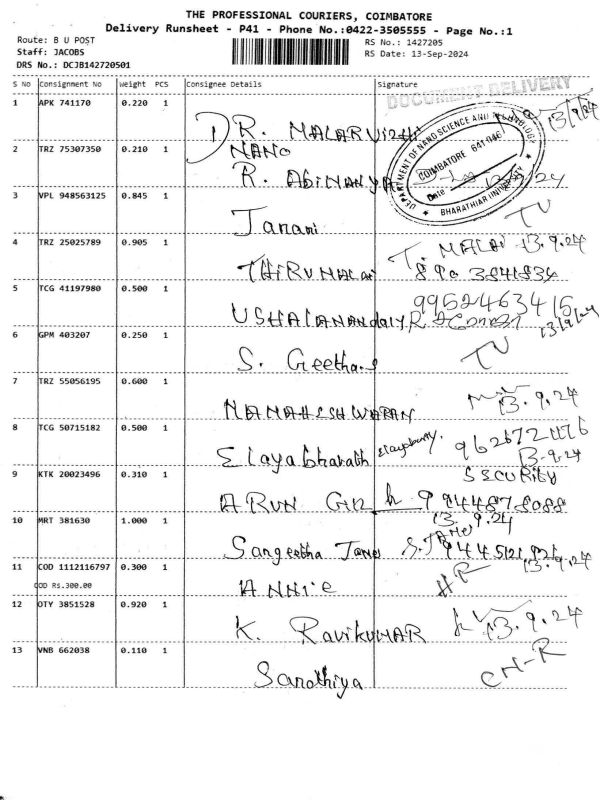 THE PROFESSIONAL COURIERS, COIMBATORE
Delivery Runsheet - P41 - Phone No.:0422-3505555 - Page No.:1
Route: B U POST
RS No.: 1427205
Staff: JACOBS
RS Date: 13-Sep-2024
DRS No.: DCJB142720501
S No Consignment No Weight PCS Consignee Details Signature
DOCUMENT DELIVERY
1 APK 741170 0.220 1 DR. MALARVIZHI 13/9/24
DEPARTMENT OF NANO SCIENCE AND TECHNOLOGY
COIMBATORE 641 046
Date
★ BHARATHIAR UNIVERSITY ★
NANO
2 TRZ 75307350 0.210 1 R. Abinaya
3 VPL 948563125 0.845 1 Janani TV
4 TRZ 25025789 0.905 1 THIRUMALAI T. MALAI 13.9.24
890 3841834
5 TCG 41197980 0.500 1 9952463415
13/9/24
6 GPM 403207 0.250 1 S. Geetha TV
7 TRZ 55056195 0.600 1 13.9.24
8 TCG 50715182 0.500 1 Elayabharath
13-9.24
9 KTK 20023496 0.310 1 SSCURITY
ARUN 9944878088
13.9.24
10 MRT 381630 1.000 1 Sangeetha James S.JAMES
13.9.24
11 COD 1112116797 0.300 1 ANNIE HR
COD Rs.300.00
12 OTY 3851528 0.920 1 K. RAVIKUMAR 13.9.24
13 VNB 662038 0.110 1 Sandhiya CN-R